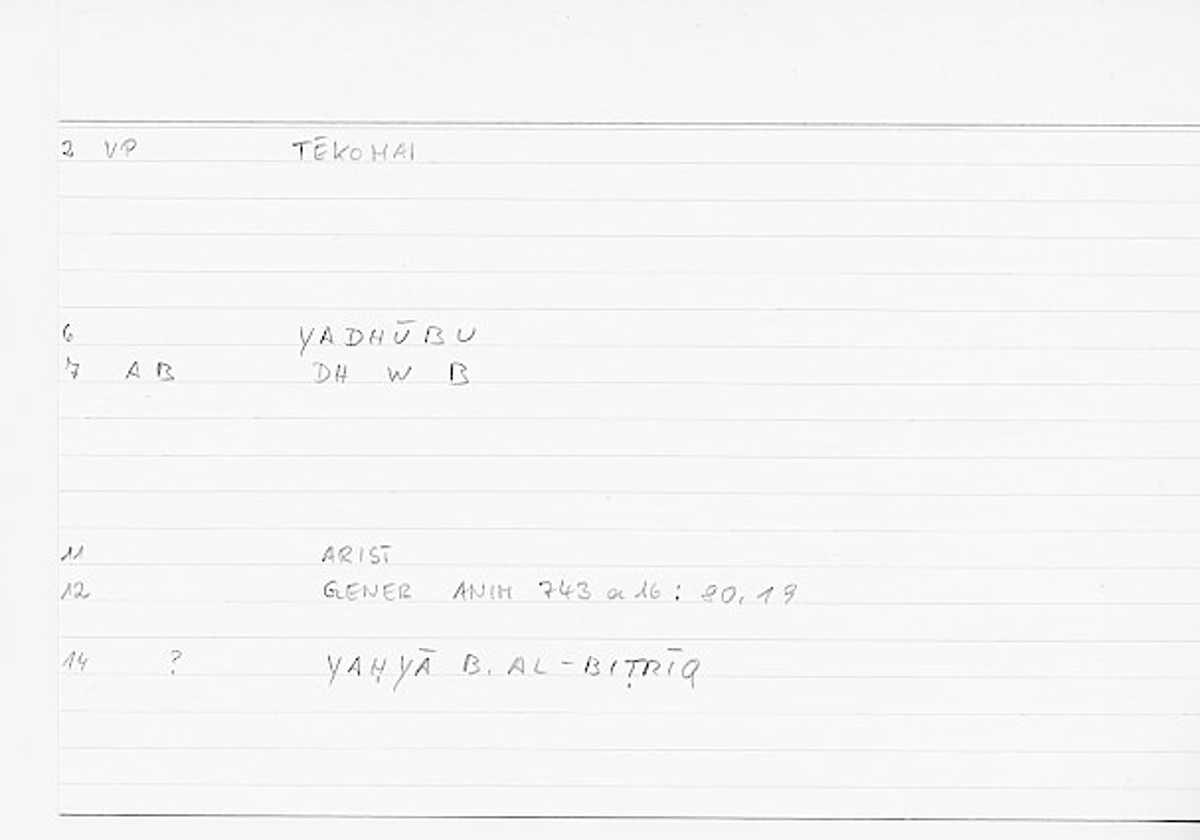 2 VP TĒKOMAI
6 YADHŪBU
7 AB DH W B
11 ARIST
12 GENER ANIM 743 a 16: 80,19
14 ? YAḤYĀ B. AL-BIṬRĪQ